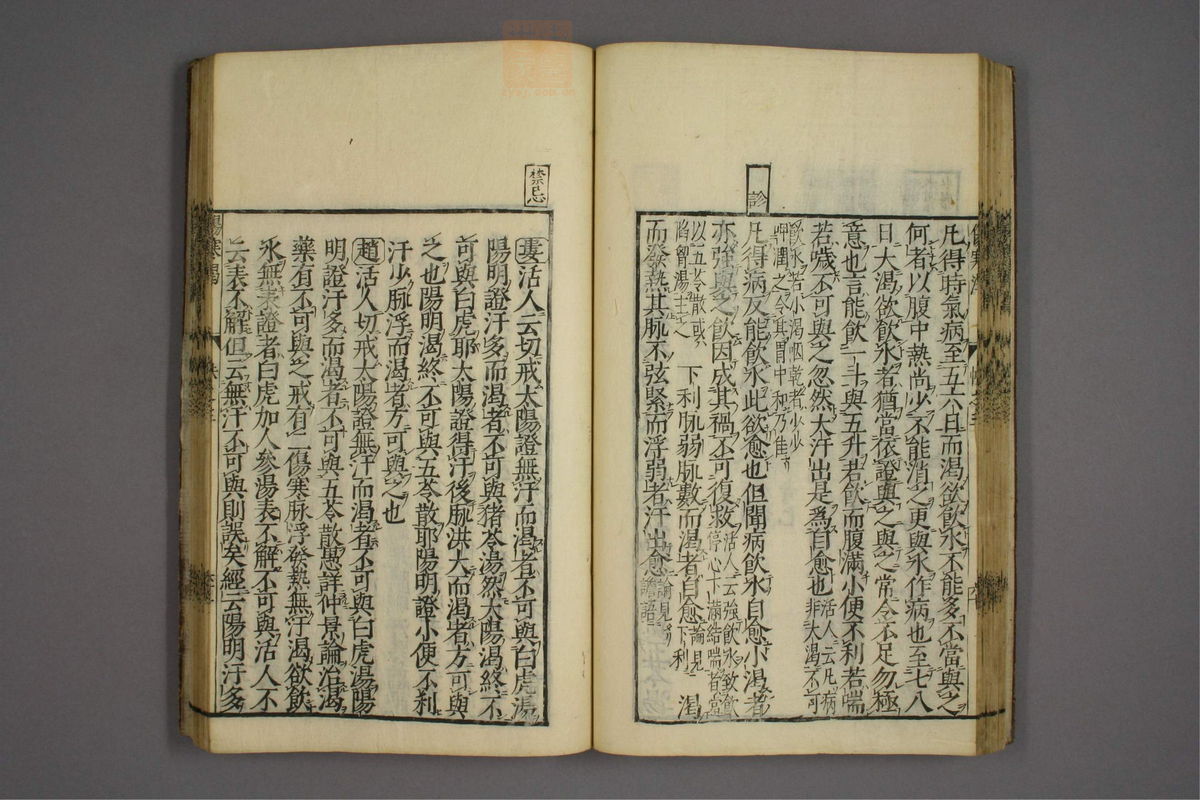 凡得時氣病至五六日而渴欲飲水不能多不當與之
何者以腹中熱尚少不能消之更與水作病也至七八
日大渴欲飲水者猶當依證與之與之常令不足勿極
意也言能飲一斗與五升若飲而腹滿小便不利若喘
若噦不可與之忽然大汗出是為自愈也
活人云凡病
非大渴不可
飲水若小渴咽乾者少少
呷潤之令其胃中和乃佳
診
凡得病反能飲水此欲愈也但聞病飲水自愈小渴者
亦強與之飲因成其禍不可復救
活人云強飲水致飲
停心下滿結喘者當
以五苓散或
陷胷湯主之
下利脉弱脉數而渴者自愈
論見
下利
渴
而發熱其脉不弦緊而浮弱者汗出愈
論見
譫語
禁忌
婁活人云切戒太陽證無汗而渴者不可與白虎湯
陽明證汗多而渴者不可與猪苓湯然太陽渴終不
可與白虎耶太陽證得汗後脉洪大而渴者方可與
之也陽明渴終不可與五苓散耶陽明證小便不利
汗少脉浮而渴者方可與之也
趙活人切戒太陽證無汗而渴者不可與白虎湯陽
明證汗多而渴者不可與五苓散愚詳仲景論治渴
藥有不可與之戒有二傷寒脉浮發熱無汗渴欲飲
水無表證者白虎加人參湯表不解不可與活人不
云表不解但云無汗不可與則誤矣經云陽明汗多